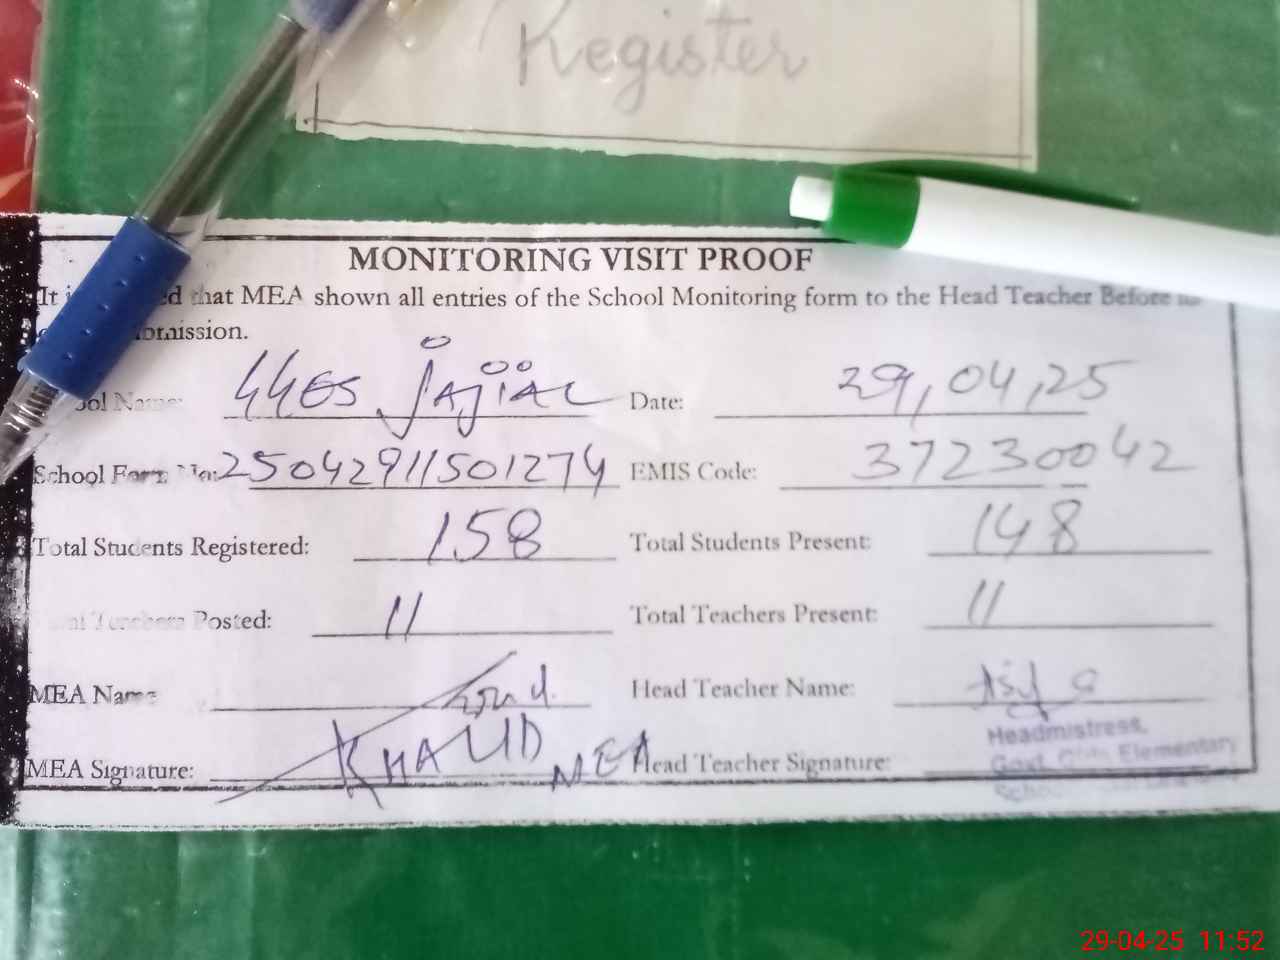 Register
MONITORING VISIT PROOF
It that MEA shown all entries of the School Monitoring form to the Head Teacher Before its
School Name: GGES Jajial Date: 29,04,25
School Form No: 25042911501274 EMIS Code: 37230042
Total Students Registered: 158 Total Students Present: 148
Teachers Posted: 11 Total Teachers Present: 11
MEA Name Head Teacher Name:
MEA Signature: KHALID MEA Head Teacher Signature:
Headmistress,
Govt. Girls Elementary
School
29-04-25 11:52